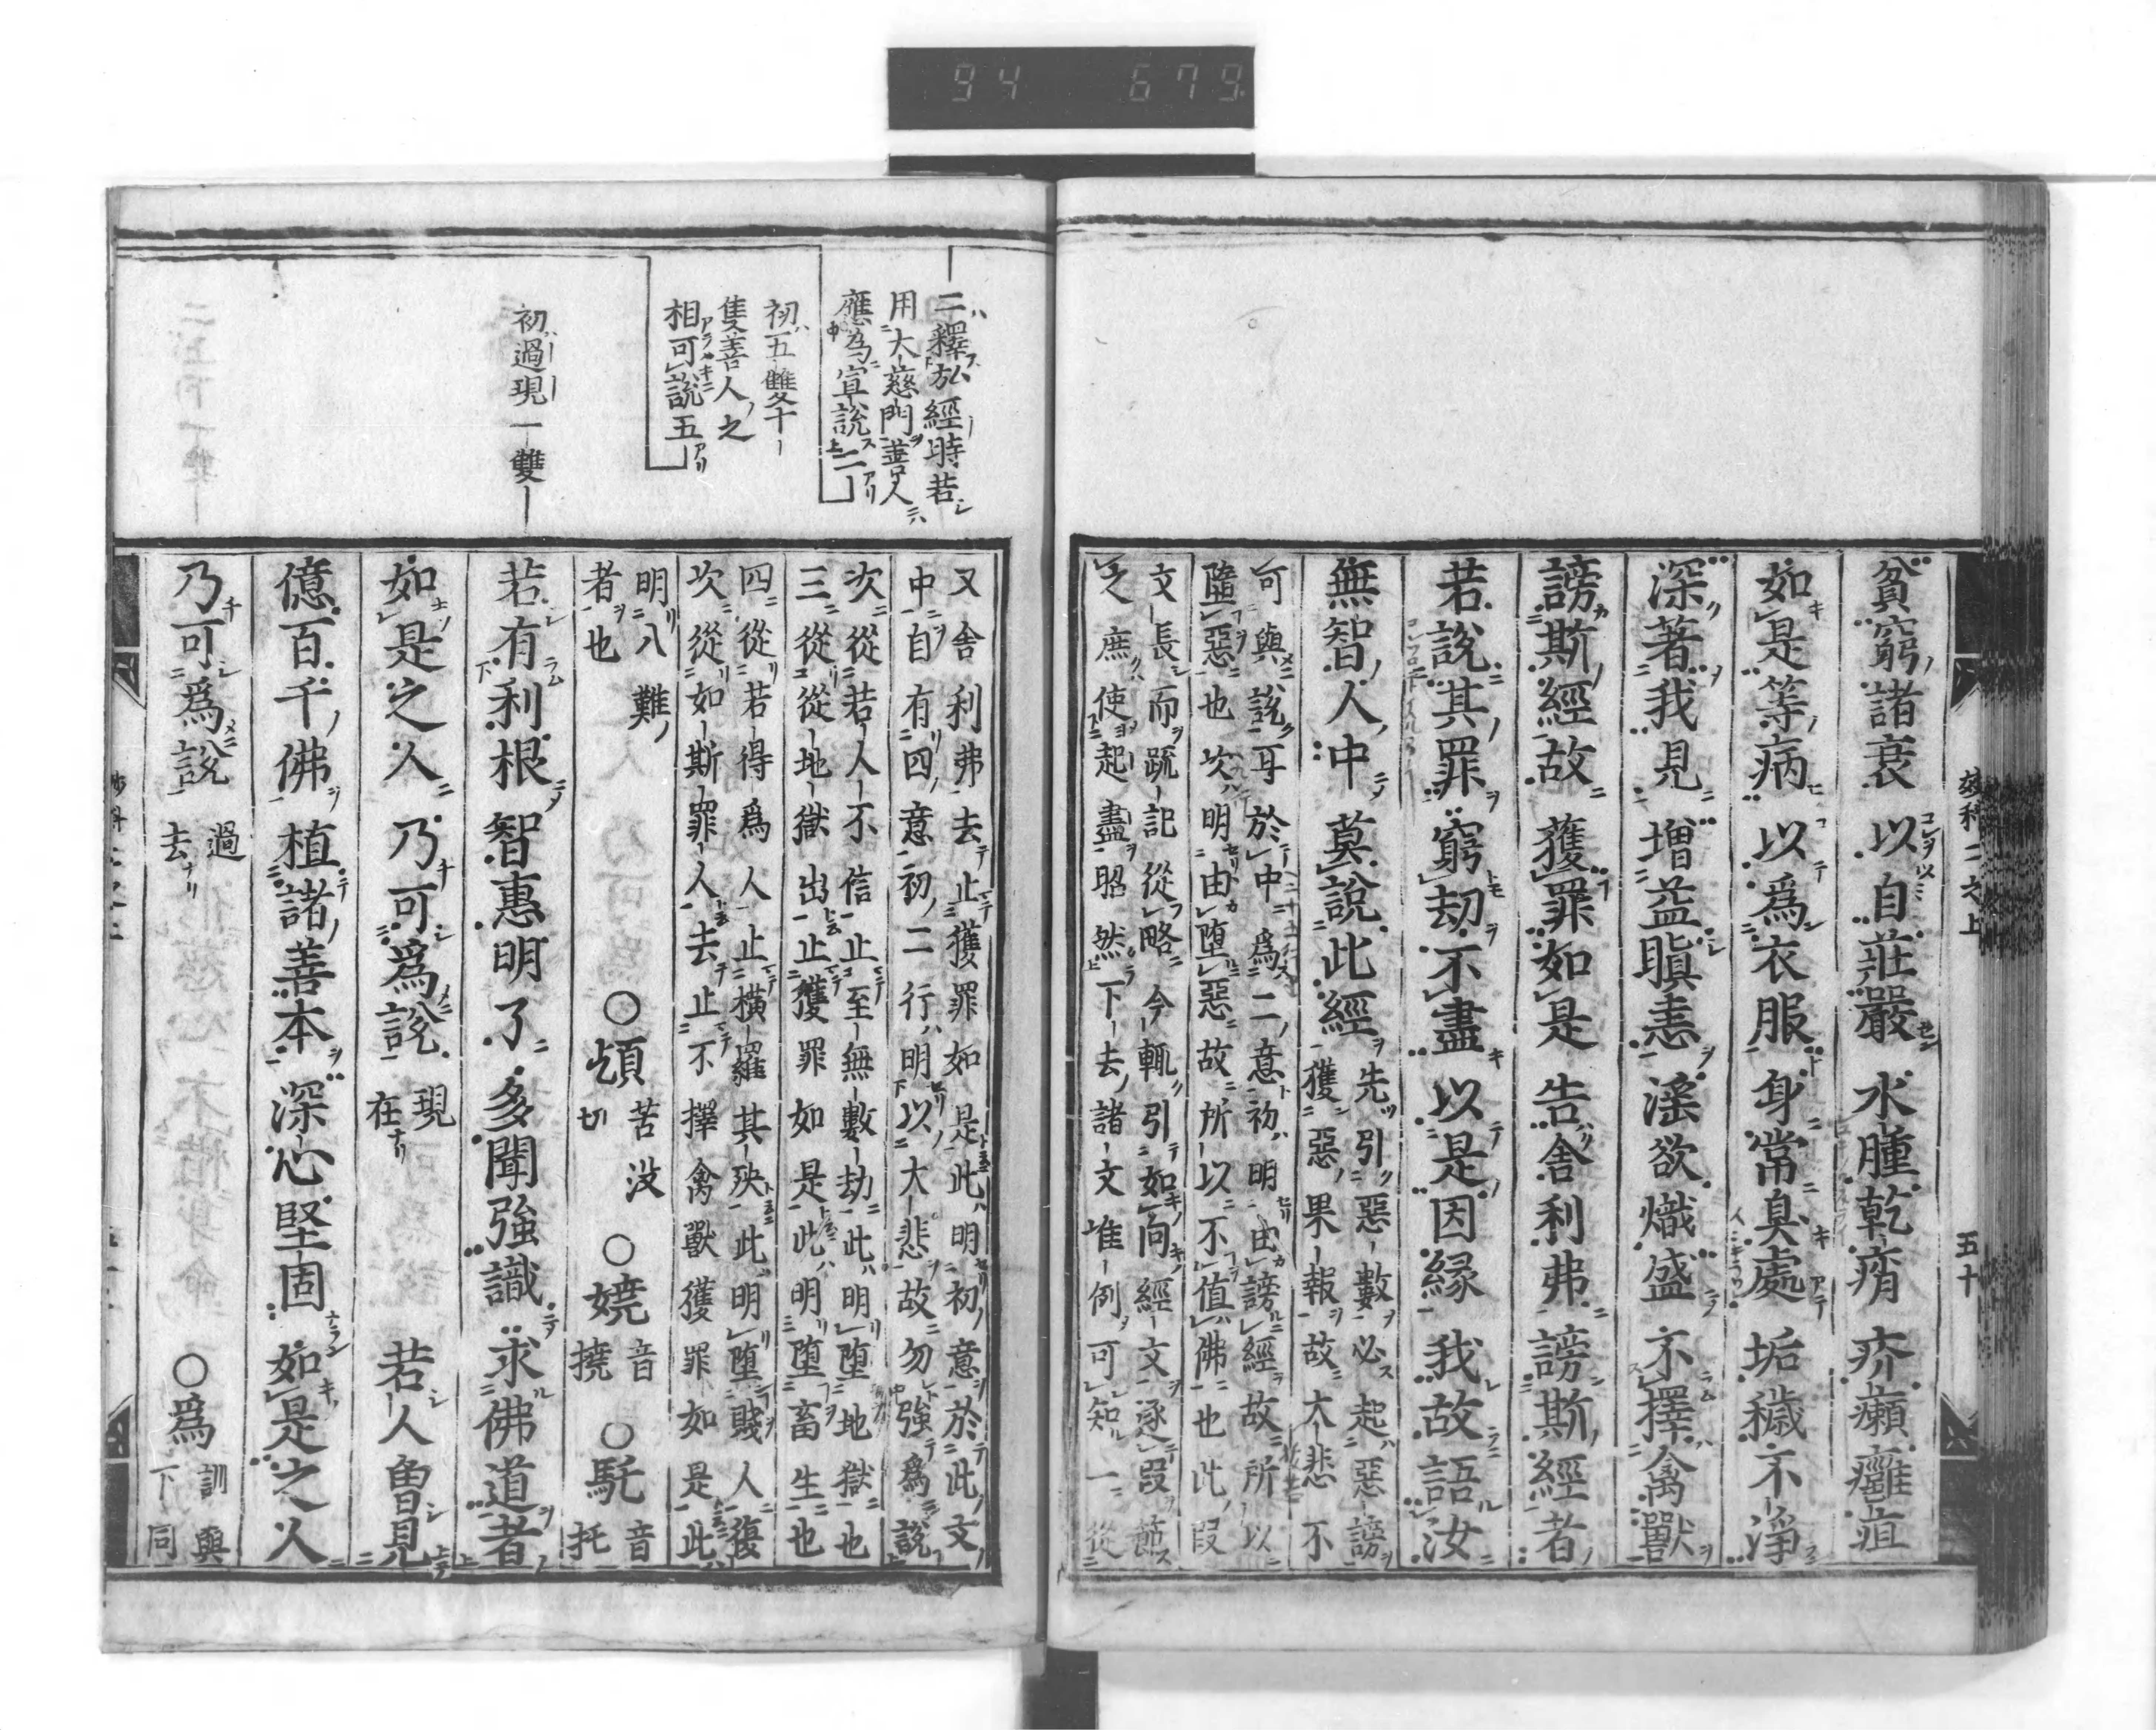 94 679
貧窮諸衰 以自莊嚴 水腫乾痟 疥癩癰疽
如是等病 以為衣服 身常臭處 垢穢不淨
深著我見 增益瞋恚 滛欲熾盛 不擇禽獸
謗斯經故 獲罪如是 告舍利弗 謗斯經者
若說其罪 窮劫不盡 以是因緣 我故語汝
無智人中 莫說此經
先引惡數必起惡謗
獲惡果報故大悲不
可與說耳於中為二意初明由謗經故所以
墮惡也次明由墮惡故所以不值佛也此段
文長而䟽記從略今輒引如向經文逐段節
之庶使起盡昭然下去諸文准例可知一從
五十
二釋弘經時若
用大慈門善人
應為宣說二
初五雙十
隻善人之
相可說五
初過現一雙
又舍利弗去止獲罪如是此明初意於此文
中自有四意初二行明以大悲故勿強為說
次從若人不信止至無數劫此明墮地獄也
三從從地獄出止獲罪如是此明墮畜生也
四從若得為人止橫羅其殃此明墮賤人復
次從如斯罪人去止不擇禽獸獲罪如是此
明八難
者也
○頓 苦沒切 ○嬈 音撓 ○馲 音托
若有利根 智惠明了 多聞強識 求佛道者
如是之人 乃可爲說 現在 若人曾見
億百千佛 植諸善本 深心堅固 如是之人
乃可爲說 過去 ○爲 訓與下同